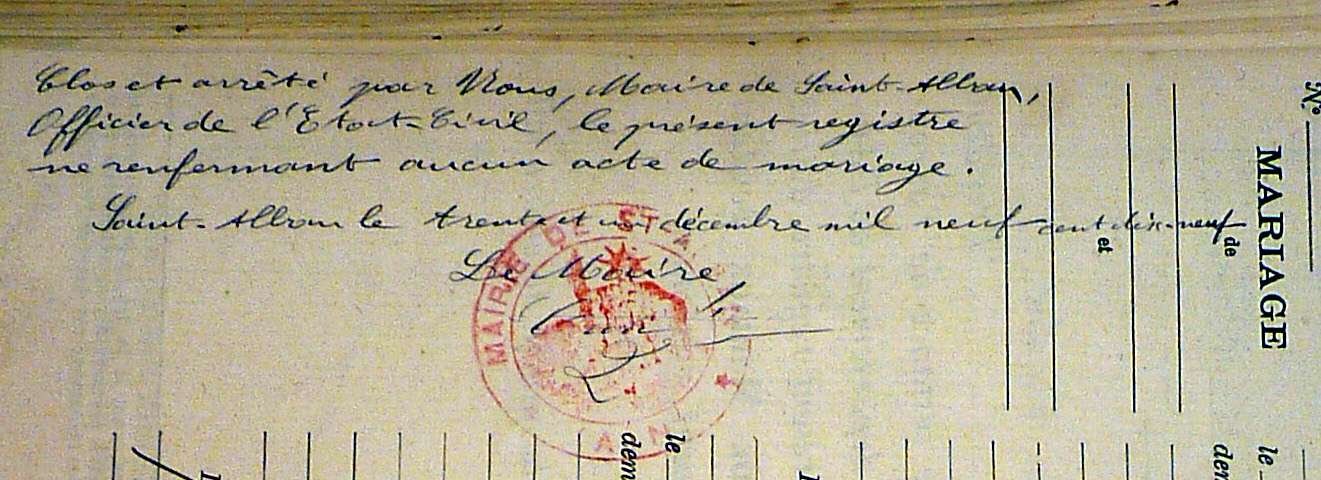 Clos et arrêté par Nous, Maire de Saint-Alban,
Officier de l'Etat-Civil, le présent registre
ne renfermant aucun acte de mariage.
Saint-Alban le trente et un décembre mil neuf cent dix-neuf
Le Maire
MAIRIE DE ST
AIN
No
MARIAGE
de
et
le
dem
le
den